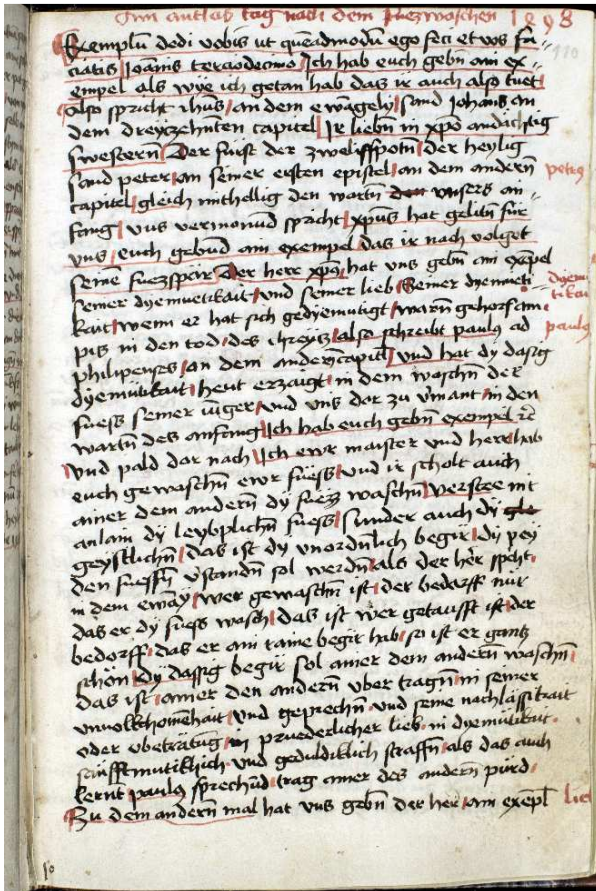 Am antlas tag nach dem fuezwaschen 1498
110
Exemplū dedi vobis ut quēadmodū ego feci et vos fa-
ciatis Joānis terciodecimo Ich hab euch gebn̄ ain ex-
empel als wye ich getan hab das ir auch also tuet
also spricht ihūs an dem ewāgely sand Johans an
dem dreyzehnten capitel Ir liebn̄ in xp̄o andächtig
swestern̄ Der furst der zwelifpotn̄ der heylig
sand peter an seiner ersten epistel an dem andern̄
petrꝯ
capitel gleich mithellig den wartn̄ den unsers an-
fang vns vermonūd spricht xp̄us hat gelitn̄ für
vns euch gebūnd ain exempel das ir nach volget
seinē fuezspar Der herr xp̄s hat vns gebn̄ ain exēpel
seiner dyemuetikait vnd seiner lieb Seiner dyemueti-
dyemu
tikait
kait wenn er hat sich gedyemutigt warn̄ gehorsam
pis in den tod des chreytz also schreibt paulꝯ ad
paulꝯ
philipenses an dem andern̄ capitl vnd hat dy dasig
dyemütikait heut erzaigt in dem waschn̄ der
fuess seiner iūger vnd vns dar zu v̄mant in den
wartn̄ des anfang Ich hab euch gebn̄ exempel ꝛc̄
vnd pald dar nach Ich ewr maister vnd herr hab
euch gewaschn̄ ewr füess vnd ir scholt auch
ainer dem andern̄ dy fuez waschn̄ verstee nit
anlain dy leyblichn̄ fuess sunder auch dy gle
geystlichn̄ das ist dy unordn̄lich begir dy pey
den fuessn̄ v̄standn̄ sol werdn̄ als der her spcht
in dem ewāy wer gewaschn̄ ist der bedarff nur
das er dy fuess wasch das ist wer getaufft ist der
bedorff das er ain raine begir hab so ist er gantz
schön dy dassig begir sol ainer dem andern̄ waschn̄
das ist ainer den andern̄ vber tragn̄ in seiner
unvolkhomēhait vnd geprechn̄ vnd seine nachlässikait
oder vbeträtūg in pruederlicher lieb in dyemütikait
sänfftmutiklich vnd geduldiklich straffn̄ als das auch
lernt paulꝯ sprechūd trag ainer des andern̄ pürd
Zu dem andern̄ mal hat vns gebn̄ der her ain exēpl
lieb
10